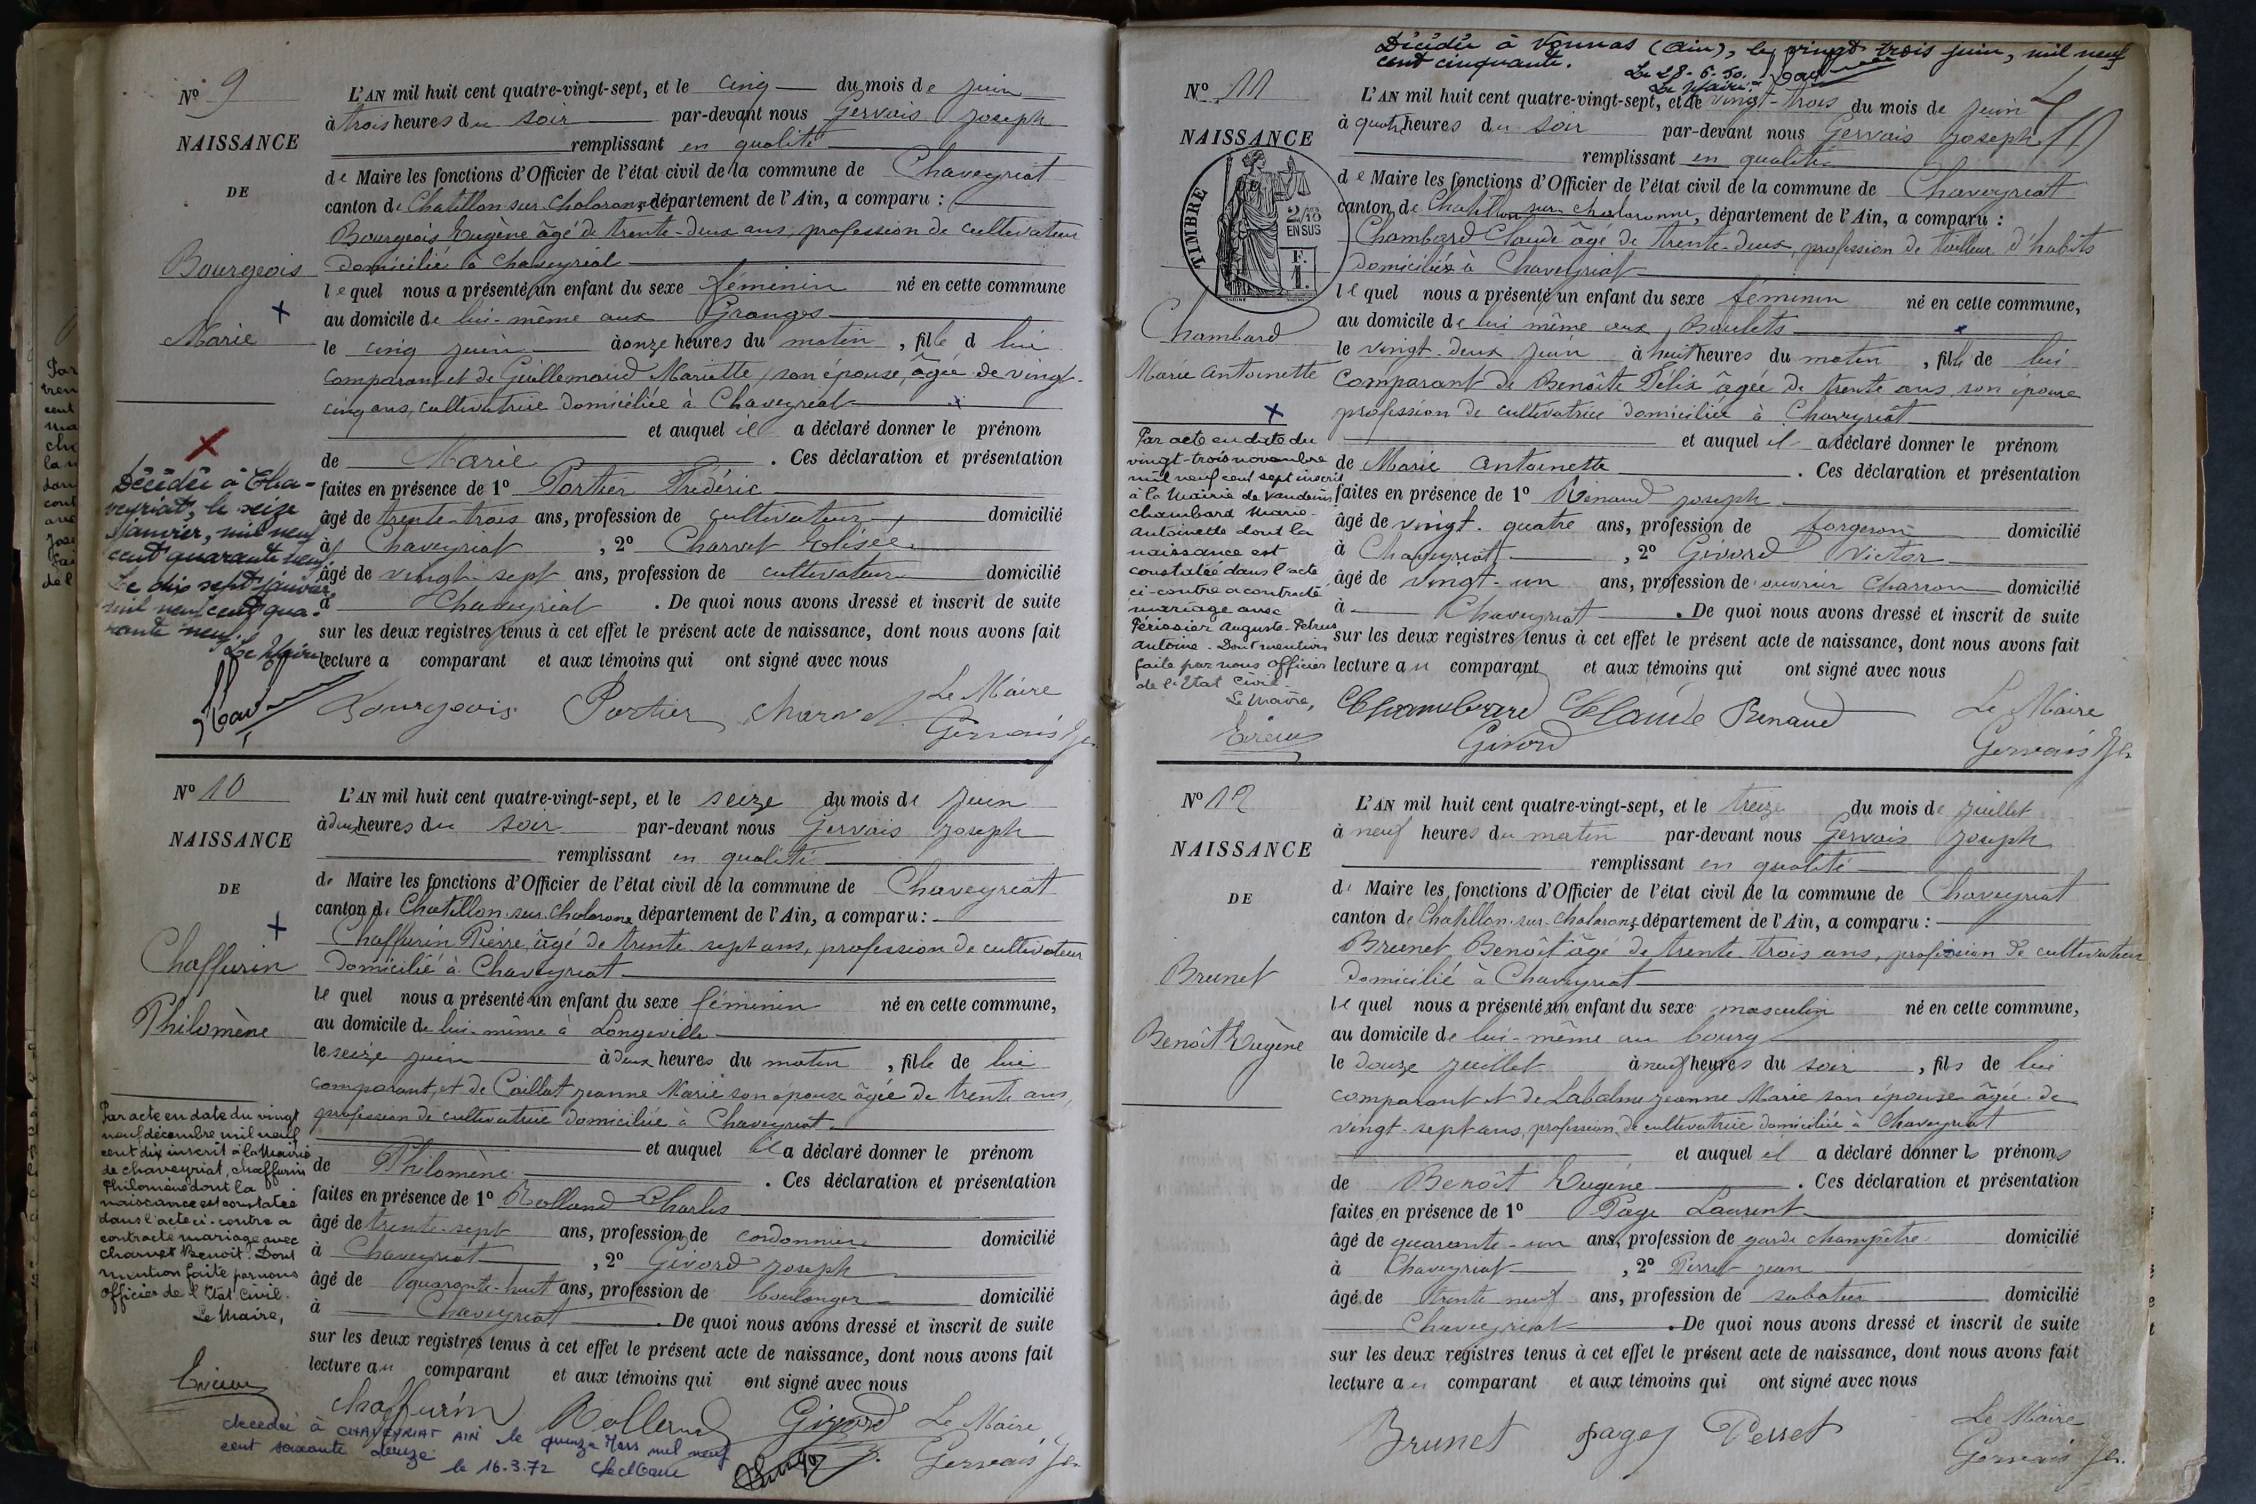 Nº 9
NAISSANCE
DE
Bourgeois
Marie
L'AN mil huit cent quatre-vingt-sept, et le cinq du mois de juin
à trois heures du soir par-devant nous Gervais Joseph
remplissant en qualité
de Maire les fonctions d'Officier de l'état civil de la commune de Chaveyriat
canton de Chatillon sur Chalaronne département de l'Ain, a comparu :
Bourgeois Eugène âgé de trente-deux ans, profession de cultivateur
domicilié à Chaveyriat
lequel nous a présenté un enfant du sexe féminin né en cette commune
au domicile de lui-même aux Granges
le cinq juin à onze heures du matin, fille d lui
comparant et de Guillemaud Mariette, son épouse, âgée de vingt-
cinq ans, cultivatrice domiciliée à Chaveyriat
et auquel il a déclaré donner le prénom
de Marie . Ces déclaration et présentation
faites en présence de 1º Portier Frédéric
âgé de trente-trois ans, profession de cultivateur domicilié
à Chaveyriat , 2º Charvet Elisée
âgé de vingt sept ans, profession de cultivateur domicilié
à Chaveyriat . De quoi nous avons dressé et inscrit de suite
sur les deux registres tenus à cet effet le présent acte de naissance, dont nous avons fait
lecture a comparant et aux témoins qui ont signé avec nous
Bourgeois Portier Charvet Le Maire
Gervais Jh
Décédée à Cha-
veyriat, le seize
janvier, mil neuf
cent quarante neuf
Le dix sept janvier
mil neuf cent qua-
rante neuf.
Le Maire
Nº 10
NAISSANCE
DE
Chaffurin
Philomène
L'AN mil huit cent quatre-vingt-sept, et le seize du mois de juin
à deux heures du soir par-devant nous Gervais Joseph
remplissant en qualité
de Maire les fonctions d'Officier de l'état civil de la commune de Chaveyriat
canton de Chatillon-sur-Chalaronne département de l'Ain, a comparu :
Chaffurin Pierre, âgé de trente-sept ans, profession de cultivateur
domicilié à Chaveyriat
lequel nous a présenté un enfant du sexe féminin né en cette commune,
au domicile de lui-même à Longeville
le seize juin à deux heures du matin, fille de lui
comparant, et de Caillat Jeanne Marie son épouse âgée de trente ans,
profession de cultivatrice domiciliée à Chaveyriat
et auquel il a déclaré donner le prénom
de Philomène . Ces déclaration et présentation
faites en présence de 1º Rolland Charles
âgé de trente-sept ans, profession de cordonnier domicilié
à Chaveyriat , 2º Givord Joseph
âgé de quarante-huit ans, profession de boulanger domicilié
à Chaveyriat . De quoi nous avons dressé et inscrit de suite
sur les deux registres tenus à cet effet le présent acte de naissance, dont nous avons fait
lecture au comparant et aux témoins qui ont signé avec nous
Chaffurin Rolland Givord Le Maire
Gervais Jh
Par acte en date du vingt
neuf décembre mil neuf
cent dix inscrit à la Mairie
de Chaveyriat, Chaffurin
Philomène dont la
naissance est constatée
dans l'acte ci-contre a
contracté mariage avec
Charvet Benoit. Dont
mention faite par nous
Officier de l'Etat Civil.
Le Maire,
décédée à CHAVEYRIAT AIN le quinze Mars mil neuf
cent soixante douze
le 16.3.72 Le Maire
Décédée à Vonnas (Ain), le vingt trois juin, mil neuf
cent cinquante.
Le 28-6-50.
Le Maire
Nº 11
NAISSANCE
DE
TIMBRE
2/10
EN SUS
F.
1.
Chambard
Marie Antoinette
L'AN mil huit cent quatre-vingt-sept, et le vingt-trois du mois de juin
à quatre heures du soir par-devant nous Gervais Joseph
remplissant en qualité
de Maire les fonctions d'Officier de l'état civil de la commune de Chaveyriat
canton de Chatillon sur Chalaronne, département de l'Ain, a comparu :
Chambard Claude âgé de trente-deux, profession de tailleur d'habits
domicilié à Chaveyriat
lequel nous a présenté un enfant du sexe féminin né en cette commune,
au domicile de lui même aux Boulets
le vingt-deux juin à huit heures du matin, fille de lui
comparant de Benoîte Félix âgée de trente ans, son épouse
profession de cultivatrice domiciliée à Chaveyriat
et auquel il a déclaré donner le prénom
de Marie Antoinette . Ces déclaration et présentation
faites en présence de 1º Renaud Joseph
âgé de vingt-quatre ans, profession de forgeron domicilié
à Chaveyriat , 2º Givord Victor
âgé de vingt-un ans, profession de ouvrier charron domicilié
à Chaveyriat . De quoi nous avons dressé et inscrit de suite
sur les deux registres tenus à cet effet le présent acte de naissance, dont nous avons fait
lecture au comparant et aux témoins qui ont signé avec nous
Chambard Claude Renaud Le Maire
Givord Gervais Jh
Par acte en date du
vingt-trois novembre
mil neuf cent sept inscrit
à la Mairie de Vandeins
Chambard Marie-
Antoinette dont la
naissance est
constatée dans l'acte
ci-contre a contracté
mariage avec
Périssier Auguste-Petrus
Antoine. Dont mention
faite par nous Officier
de l'Etat Civil.
Le Maire,
Nº 12
NAISSANCE
DE
Brunet
Benoît Eugène
L'AN mil huit cent quatre-vingt-sept, et le treize du mois de juillet
à neuf heures du matin par-devant nous Gervais Joseph
remplissant en qualité
de Maire les fonctions d'Officier de l'état civil de la commune de Chaveyriat
canton de Chatillon-sur-Chalaronne département de l'Ain, a comparu :
Brunet Benoît âgé de trente-trois ans, profession de cultivateur
domicilié à Chaveyriat
lequel nous a présenté un enfant du sexe masculin né en cette commune,
au domicile de lui-même au bourg
le douze juillet à neuf heures du soir, fils de lui
comparant et de Labalme Jeanne Marie son épouse âgée de
vingt-sept ans, profession de cultivatrice domiciliée à Chaveyriat
et auquel il a déclaré donner les prénoms
de Benoît Eugène . Ces déclaration et présentation
faites en présence de 1º Page Laurent
âgé de quarante-un ans, profession de garde champêtre domicilié
à Chaveyriat , 2º Perret Jean
âgé de trente neuf ans, profession de sabotier domicilié
Chaveyriat . De quoi nous avons dressé et inscrit de suite
sur les deux registres tenus à cet effet le présent acte de naissance, dont nous avons fait
lecture au comparant et aux témoins qui ont signé avec nous
Brunet Page Perret Le Maire
Gervais Jh.